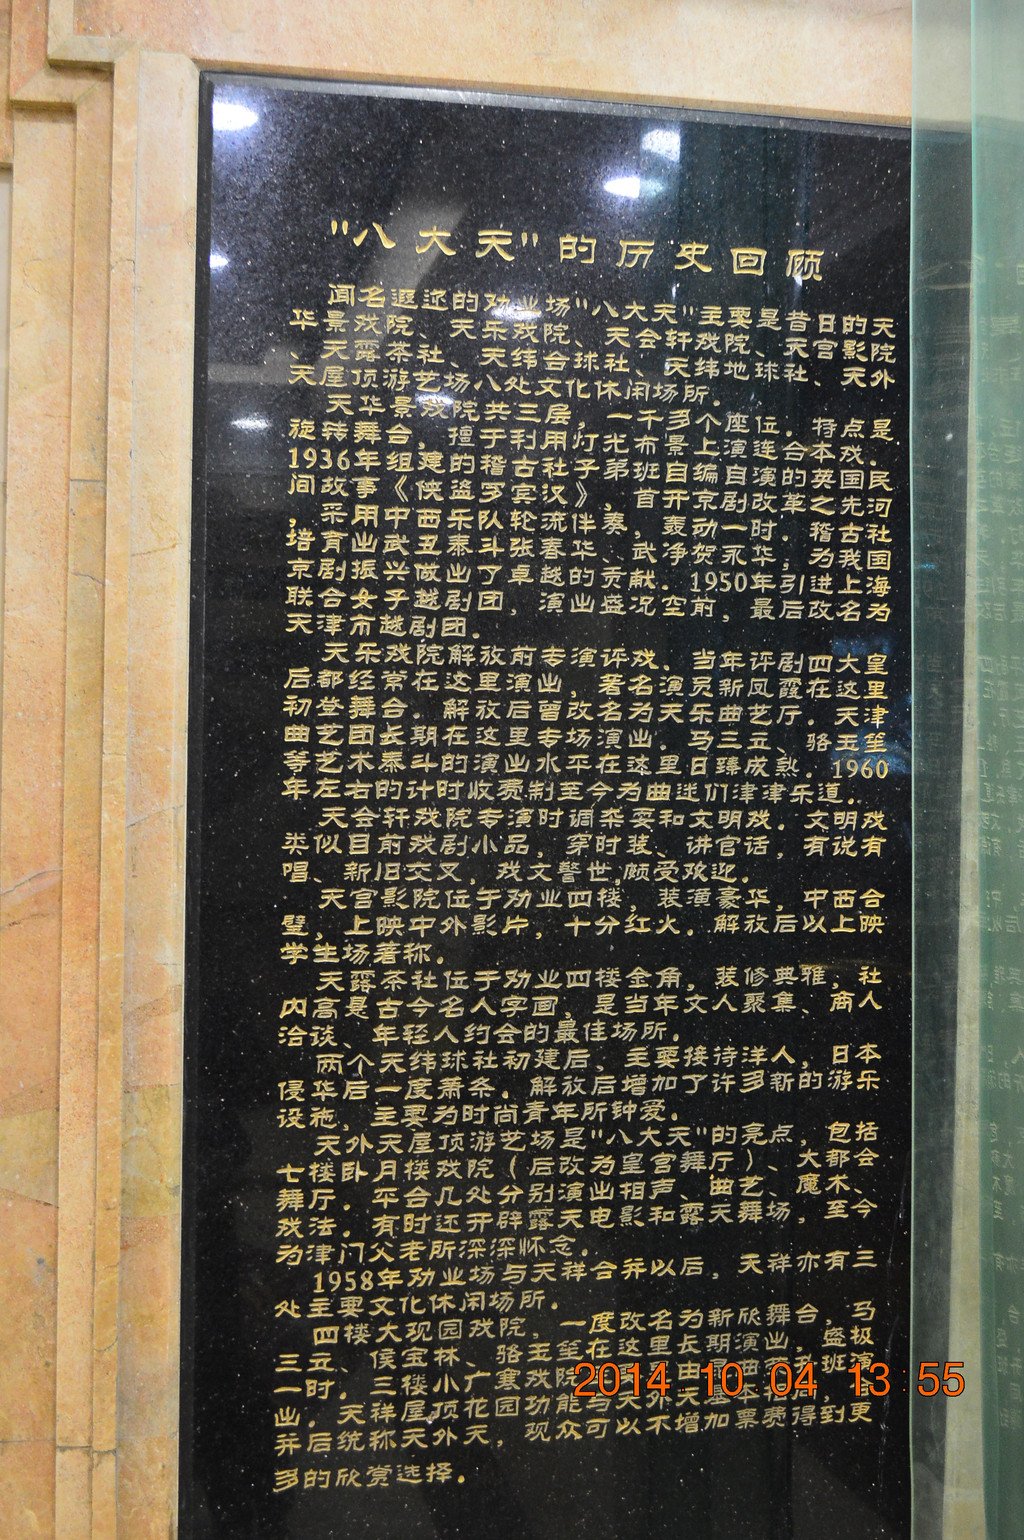 "八大天"的历史回顾
闻名遐迩的劝业场"八大天"主要是昔日的天
华景戏院、天乐戏院、天会轩戏院、天宫影院
、天露茶社、天纬台球社、天纬地球社、天外
天屋顶游艺场八处文化休闲场所。
天华景戏院共三层,一千多个座位。特点是
旋转舞台,擅于利用灯光布景上演连台本戏。
1936年组建的稽古社子弟班自编自演的英国民
间故事《侠盗罗宾汉》,首开京剧改革之先河
,采用中西乐队轮流伴奏,轰动一时。稽古社
培育出武丑泰斗张春华、武净贺永华,为我国
京剧振兴做出了卓越的贡献。1950年引进上海
联合女子越剧团,演出盛况空前,最后改名为
天津市越剧团。
天乐戏院解放前专演评戏、当年评剧四大皇
后都经常在这里演出,著名演员新凤霞在这里
初登舞台。解放后曾改名为天乐曲艺厅。天津
曲艺团长期在这里专场演出。马三立、骆玉笙
等艺术泰斗的演出水平在这里日臻成熟。1960
年左右的计时收费制至今为曲迷们津津乐道。
天会轩戏院专演时调杂耍和文明戏。文明戏
类似目前戏剧小品,穿时装、讲官话,有说有
唱、新旧交叉,戏文警世,颇受欢迎。
天宫影院位于劝业四楼,装潢豪华,中西合
璧,上映中外影片,十分红火。解放后以上映
学生场著称。
天露茶社位于劝业四楼金角,装修典雅,社
内高悬古今名人字画,是当年文人聚集、商人
洽谈、年轻人约会的最佳场所。
两个天纬球社初建后,主要接待洋人,日本
侵华后一度萧条。解放后增加了许多新的游乐
设施,主要为时尚青年所钟爱。
天外天屋顶游艺场是"八大天"的亮点,包括
七楼卧月楼戏院(后改为皇宫舞厅)、大都会
舞厅。平台几处分别演出相声、曲艺、魔术、
戏法。有时还开辟露天电影和露天舞场,至今
为津门父老所深深怀念。
1958年劝业场与天祥合并以后,天祥亦有三
处主要文化休闲场所。
四楼大观园戏院,一度改名为新欣舞台,马
三立、侯宝林、骆玉笙在这里长期演出,盛极
一时。三楼小广寒戏院由
出。天祥屋顶花园功能与天外天基本
并后统称天外天,观众可以不增加票费得到更
多的欣赏选择。
2014.10.04 13:55